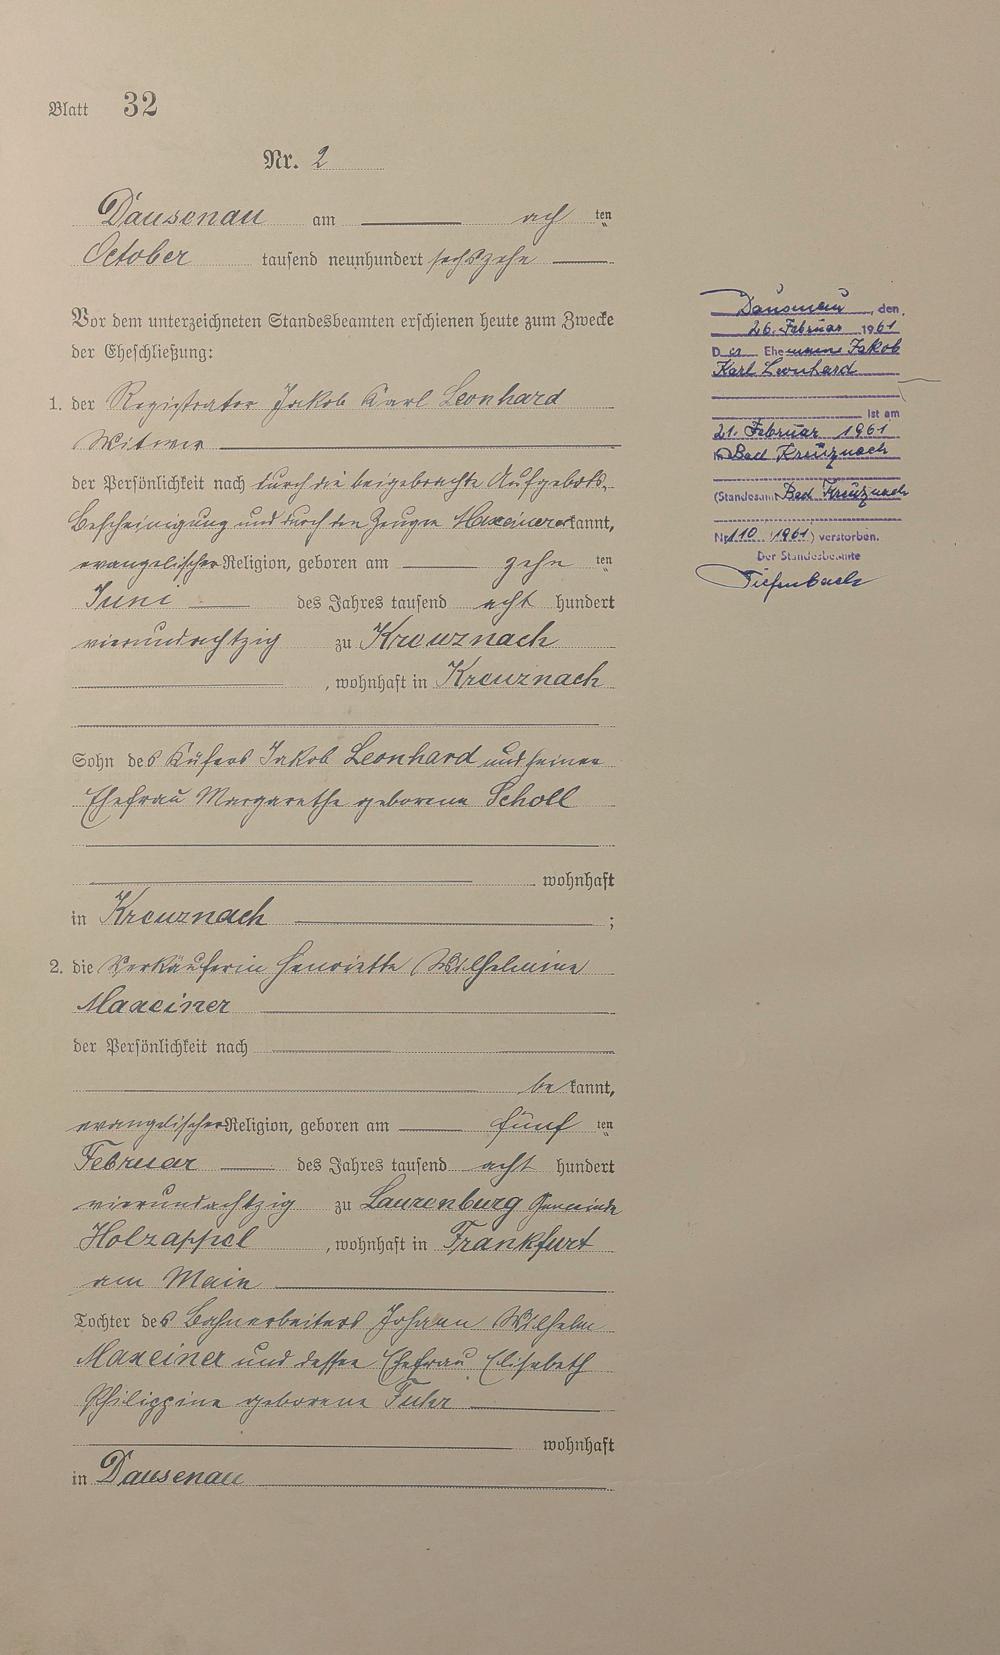 Blatt 32
Nr. 2
Dausenau am ach ten
October tausend neunhundert sechszehn
Vor dem unterzeichneten Standesbeamten erschienen heute zum Zwecke
der Eheschließung:
1. der Registrator Jakob Karl Leonhard
Witwer
der Persönlichkeit nach durch die beigebrachte Aufgebots-
bescheinigung und durch den Zeugen Maxeiner erkannt,
evangelischer Religion, geboren am zehn ten
Juni des Jahres tausend acht hundert
vierundachtzig zu Kreuznach
, wohnhaft in Kreuznach
Sohn des Küfers Jakob Leonhard und seiner
Ehefrau Margarethe geborene Scholl
wohnhaft
in Kreuznach ;
2. die Verkäuferin Henriette Wilhelmine
Maxeiner
der Persönlichkeit nach
be kannt,
evangelischer Religion, geboren am fünf ten
Februar des Jahres tausend acht hundert
vierundachtzig zu Laurenburg Gemeinde
Holzappel , wohnhaft in Frankfurt
am Main
Tochter des Bahnarbeiters Johann Wilhelm
Maxeiner und dessen Ehefrau Elisabeth
Philippine geborene Fuhr
wohnhaft
in Dausenau
Dausenau, den
26. Februar 1961
D er Ehemann Jakob
Karl Leonhard
ist am
21. Februar 1961
in Bad Kreuznach
(Standesamt Bad Kreuznach
Nr. 110 / 1961) verstorben.
Der Standesbeamte
Tiefenbach